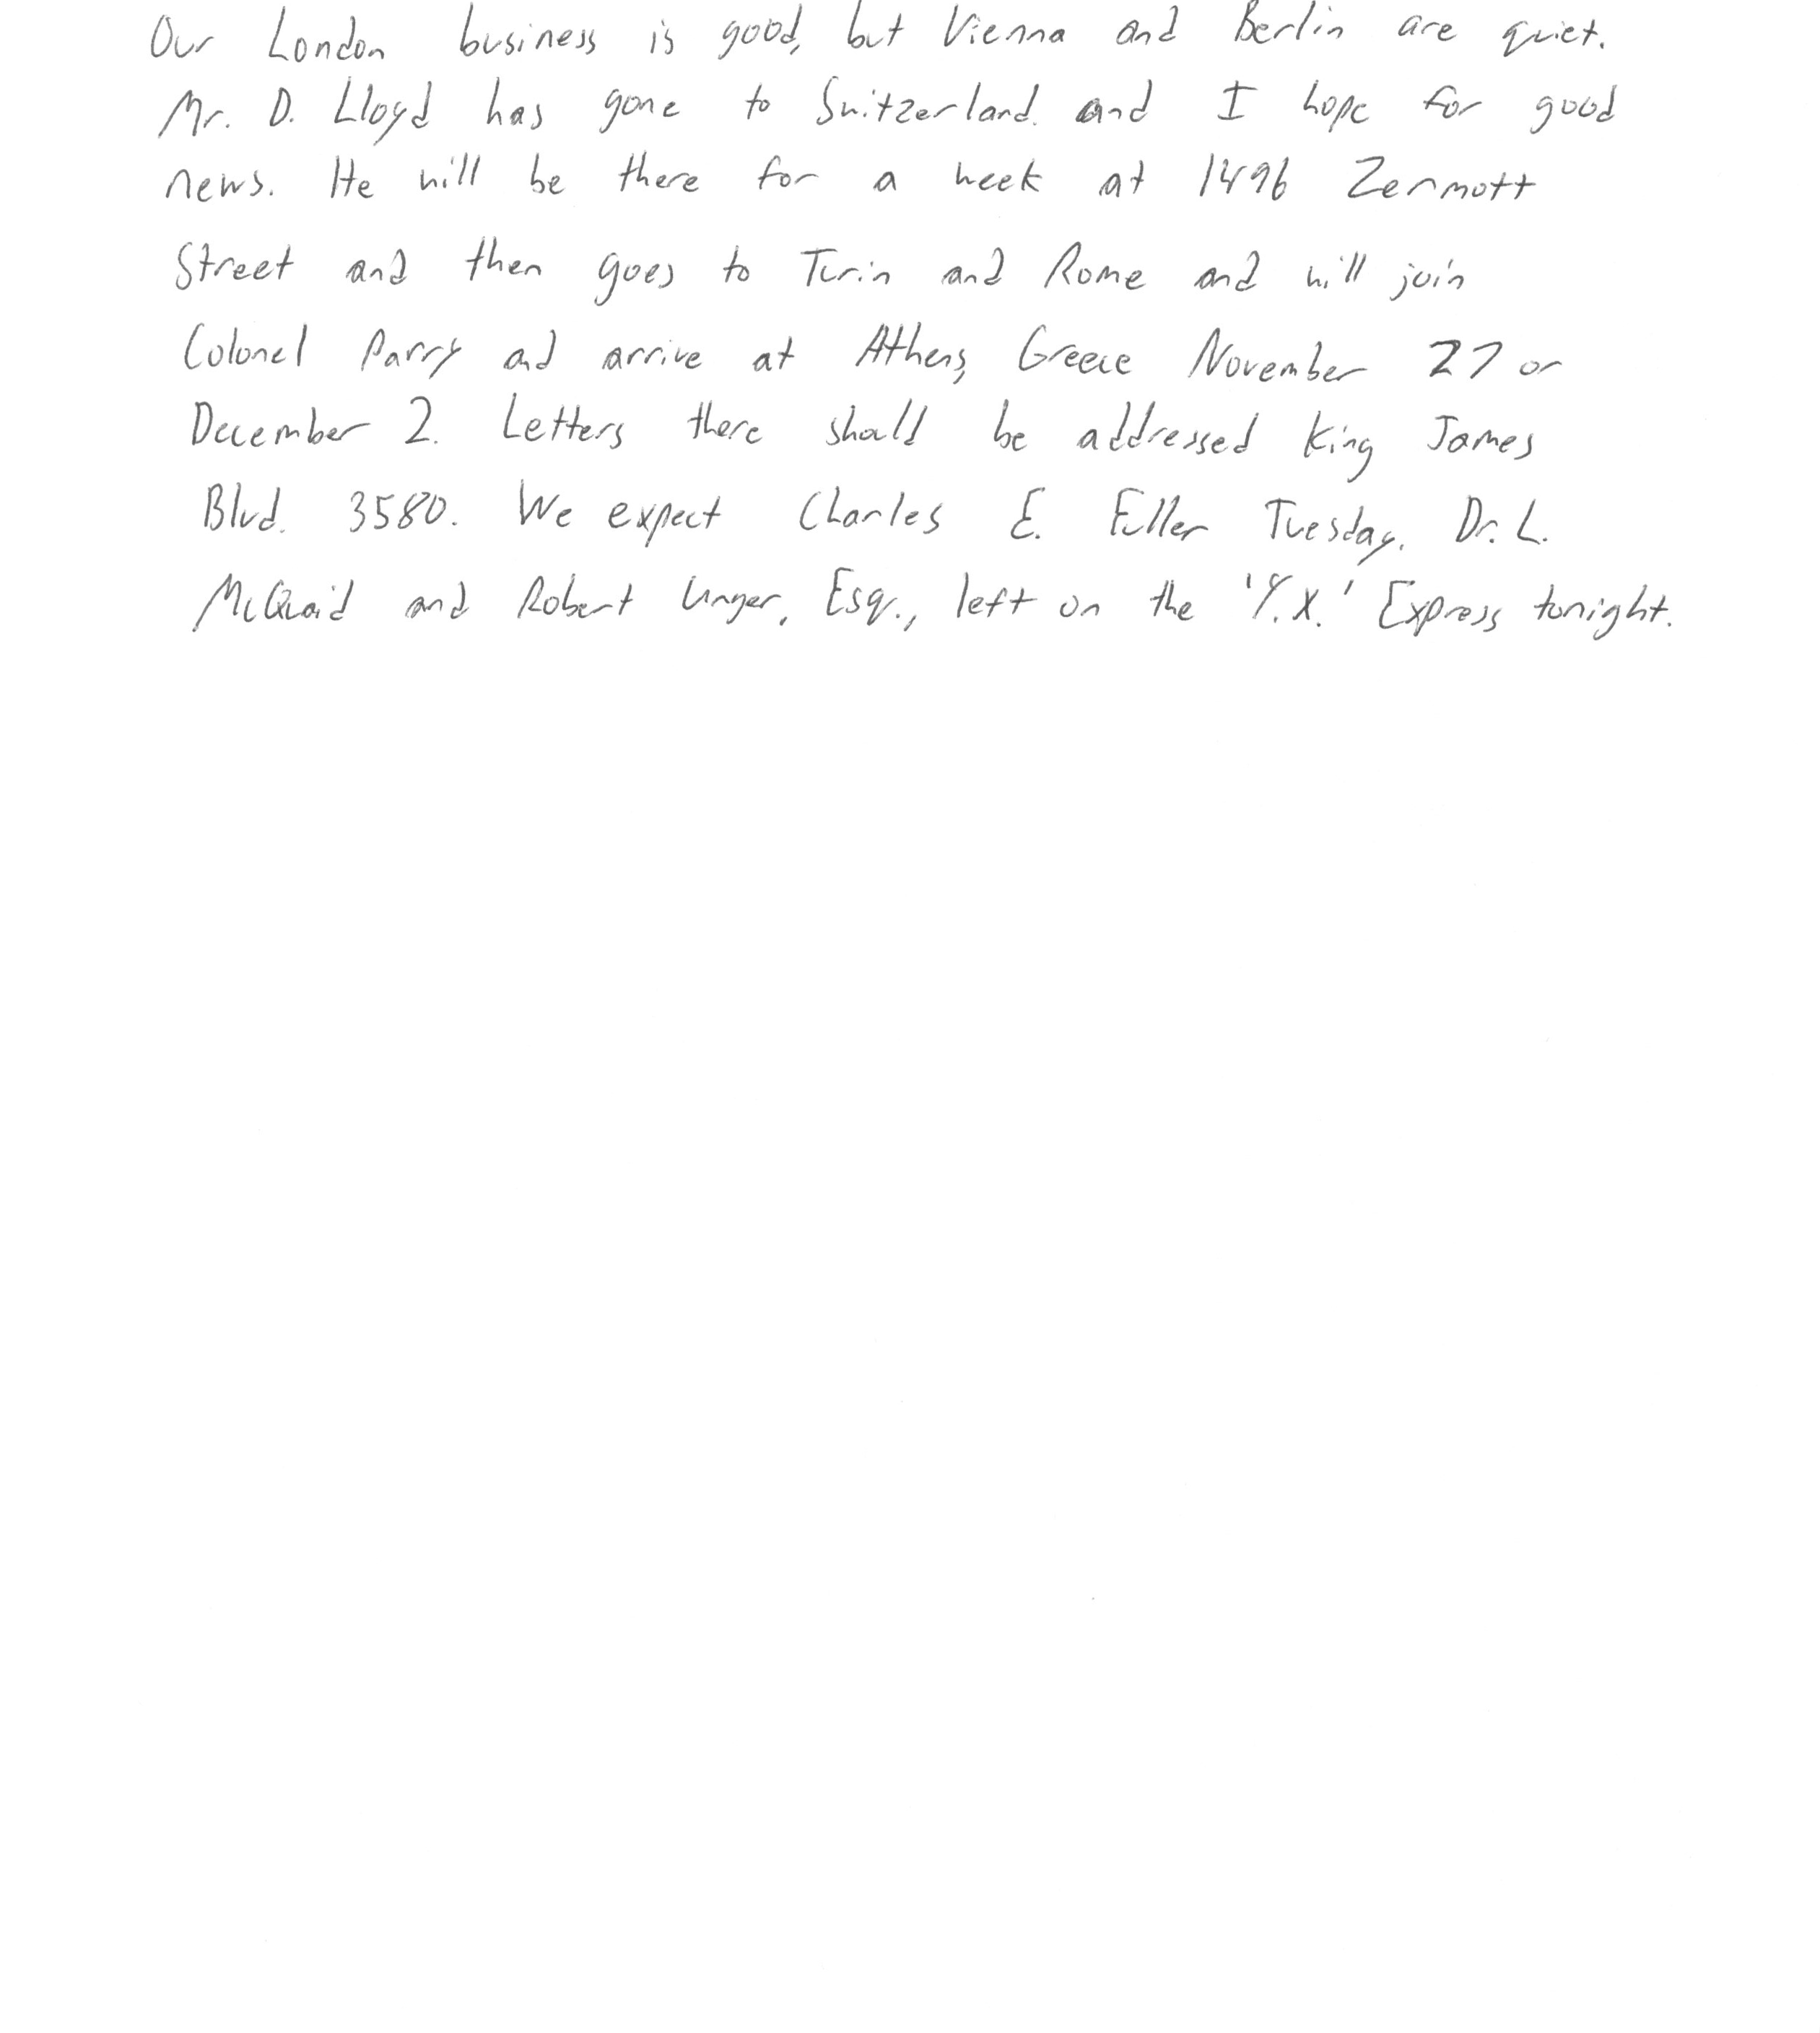 Our London business is good, but Vienna and Berlin are quiet.
Mr. D. Lloyd has gone to Switzerland. and I hope for good
news. He will be there for a week at 1496 Zermott
Street and then goes to Turin and Rome and will join
Colonel Parry and arrive at Athens, Greece November 27 or
December 2. Letters there should be addressed King James
Blvd. 3580. We expect Charles E. Fuller Tuesday. Dr. L.
McQuaid and Robert Unger, Esq., left on the 'Y.X.' Express tonight.